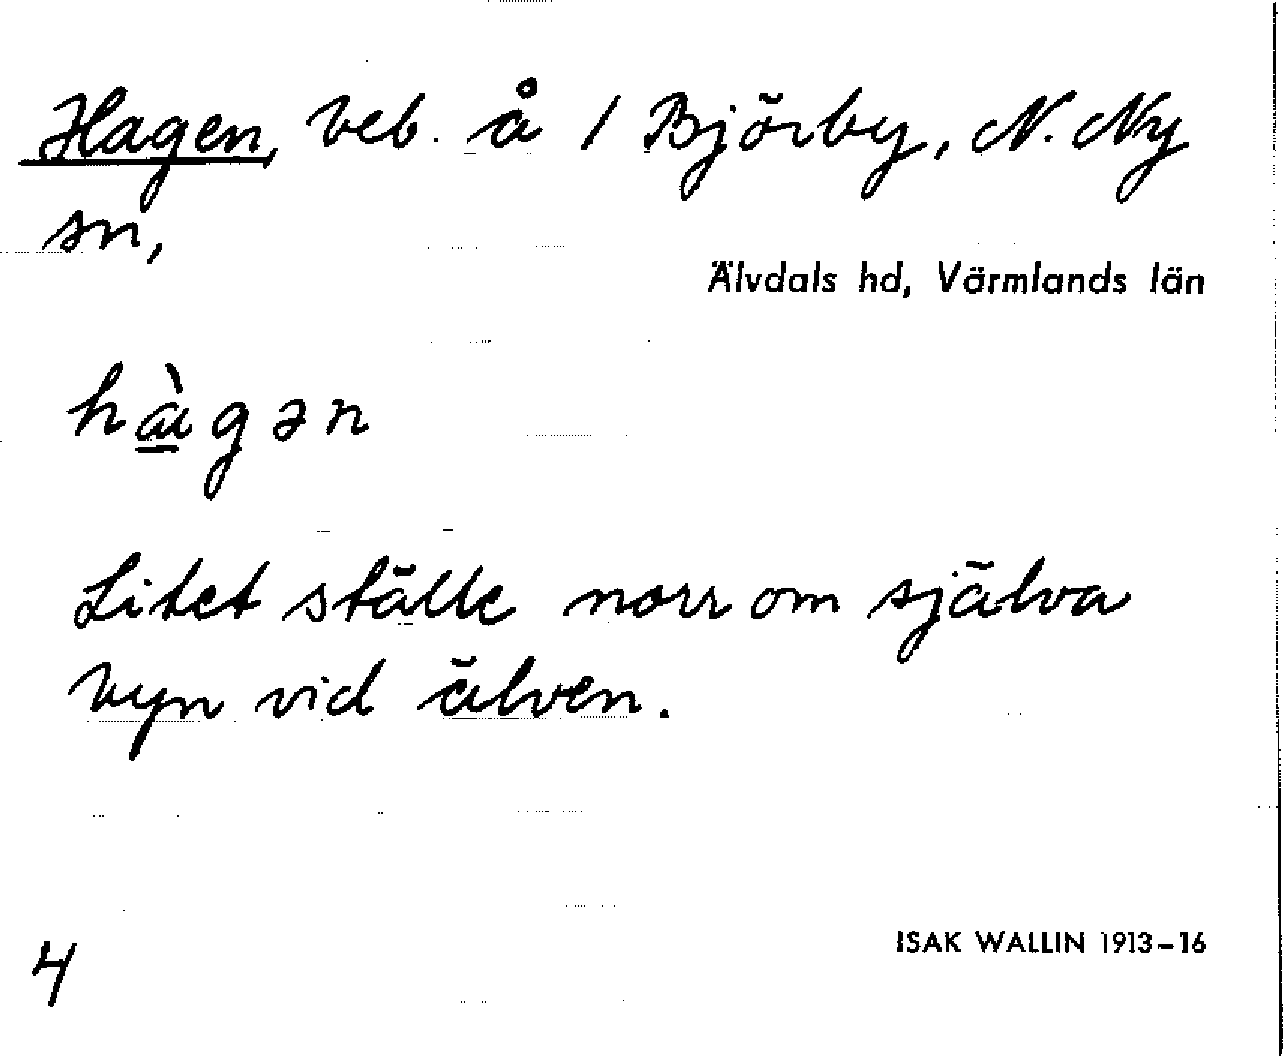 Hagen, beb. å 1 Björby, N. Ny
sn,
Älvdals hd, Värmlands län
hàgən
Litet ställe norr om själva
byn vid älven.
4
ISAK WALLIN 1913-16